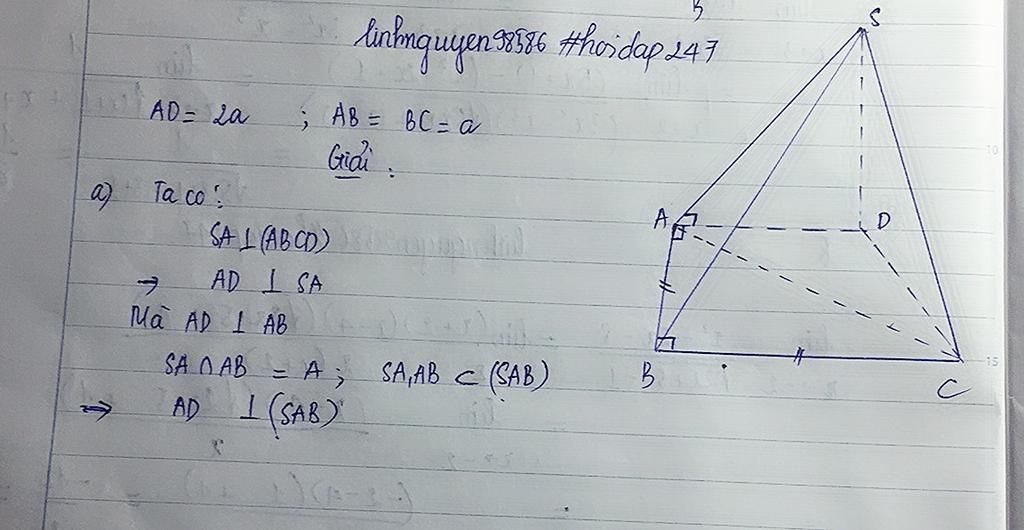 linhnguyen98586 #hoidap247
AD = 2a ; AB = BC = a
Giải :
a) Ta co :
SA ⊥ (ABCD)
→ AD ⊥ SA
Mà AD ⊥ AB
SA ∩ AB = A ; SA, AB ⊂ (SAB)
⇒ AD ⊥ (SAB)
S
A
D
B
C
10
15